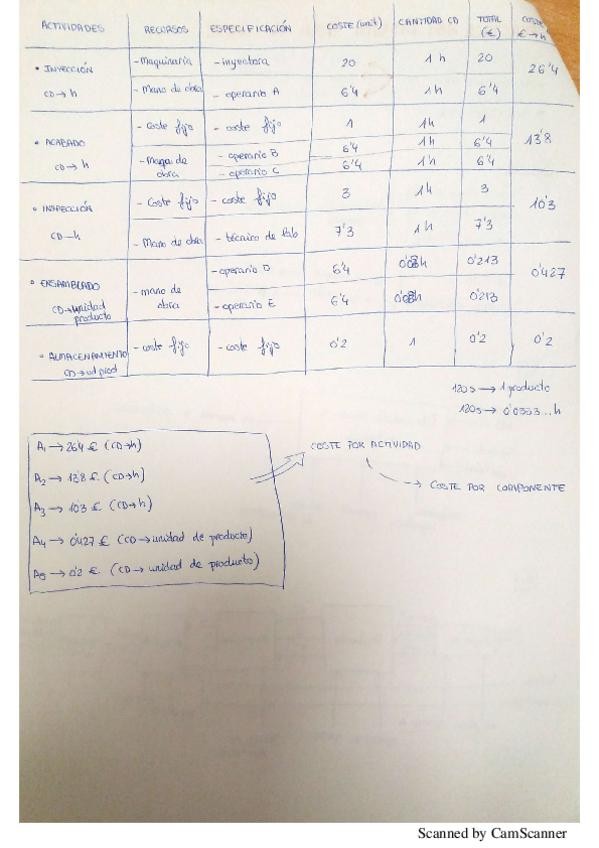 ACTIVIDADES RECURSOS ESPECIFICACIÓN COSTE (unit) CANTIDAD CD TOTAL (€) COSTE € → h
• INYECCIÓN - Maquinaria - inyectora 20 1 h 20 26'4
CD → h - Mano de obra - operario A 6'4 1h 6'4
• ACABADO - Coste fijo - coste fijo 1 1h 1 13'8
CD → h - Mano de obra - operario B 6'4 1h 6'4
- operario C 6'4 1h 6'4
• INSPECCIÓN - Coste fijo - coste fijo 3 1h 3 10'3
CD → h - Mano de obra - técnico de lab 7'3 1 h 7'3
• ENSAMBLADO - mano de obra - operario D 6'4 h 0'213 0'427
CD → unidad producto - operario E 6'4 h 0'213
• ALMACENAMIENTO - coste fijo - coste fijo 0'2 1 0'2 0'2
CD → ud prod
120s → 1 producto
120s → 0'0333... h
A1 → 26'4 € (CD → h)
A2 → 13'8 € (CD → h)
A3 → 10'3 € (CD → h)
A4 → 0'427 € (CD → unidad de producto)
A5 → 0'2 €. (CD → unidad de producto)
COSTE POR ACTIVIDAD
→ COSTE POR COMPONENTE
Scanned by CamScanner